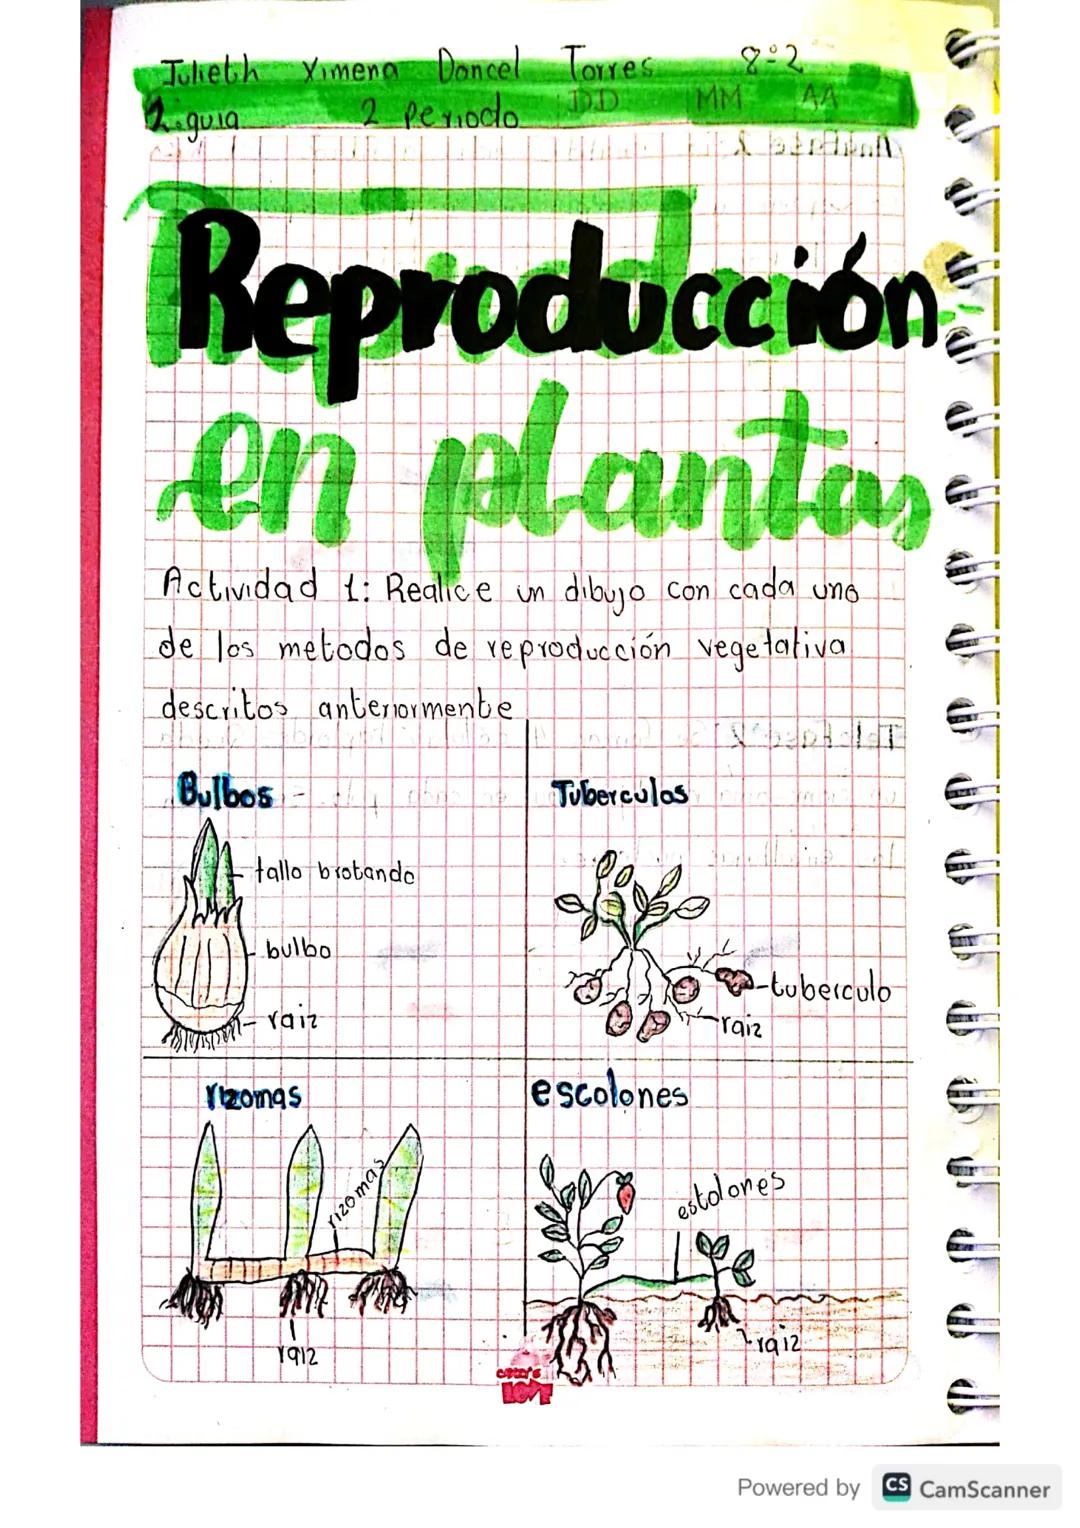 Julieth Ximena Doncel Torres 8°2
2.guia 2 periodo DD MM AA
Reproducción
en plantas
Actividad 1: Realice un dibujo con cada uno
de los metodos de reproducción vegetativa
descritos anteriormente
Bulbos
tallo brotando
bulbo
raiz
Tuberculos
tuberculo
raiz
rizomas
rizomas
raiz
escolones
estolones
raiz
LOVE
Powered by CS CamScanner